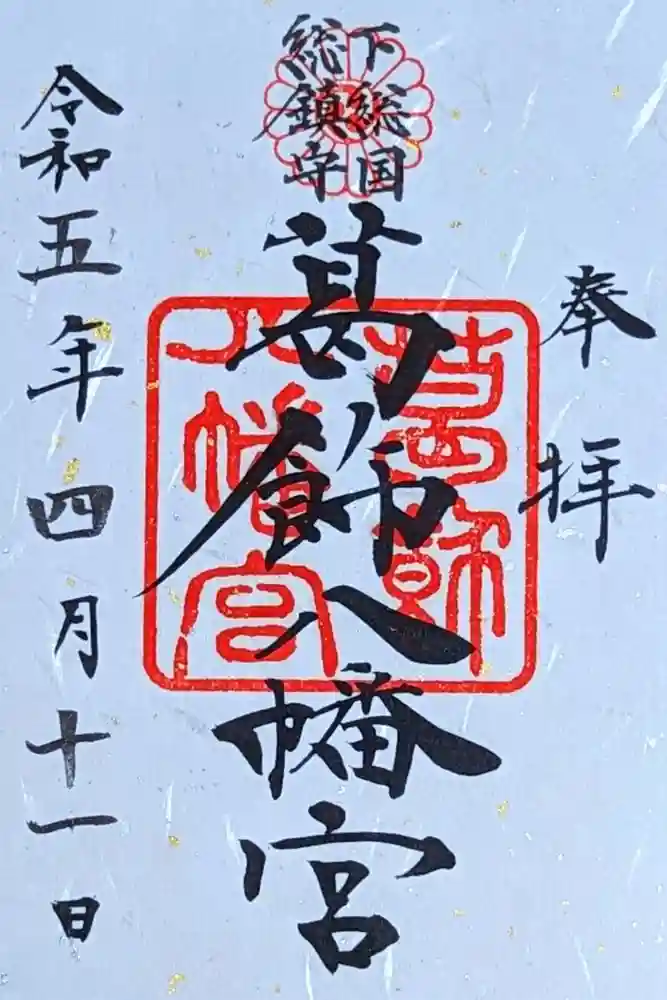 奉拝
下総国
総鎮守
葛飾八幡宮
葛飾
八幡宮
令和五年四月十一日